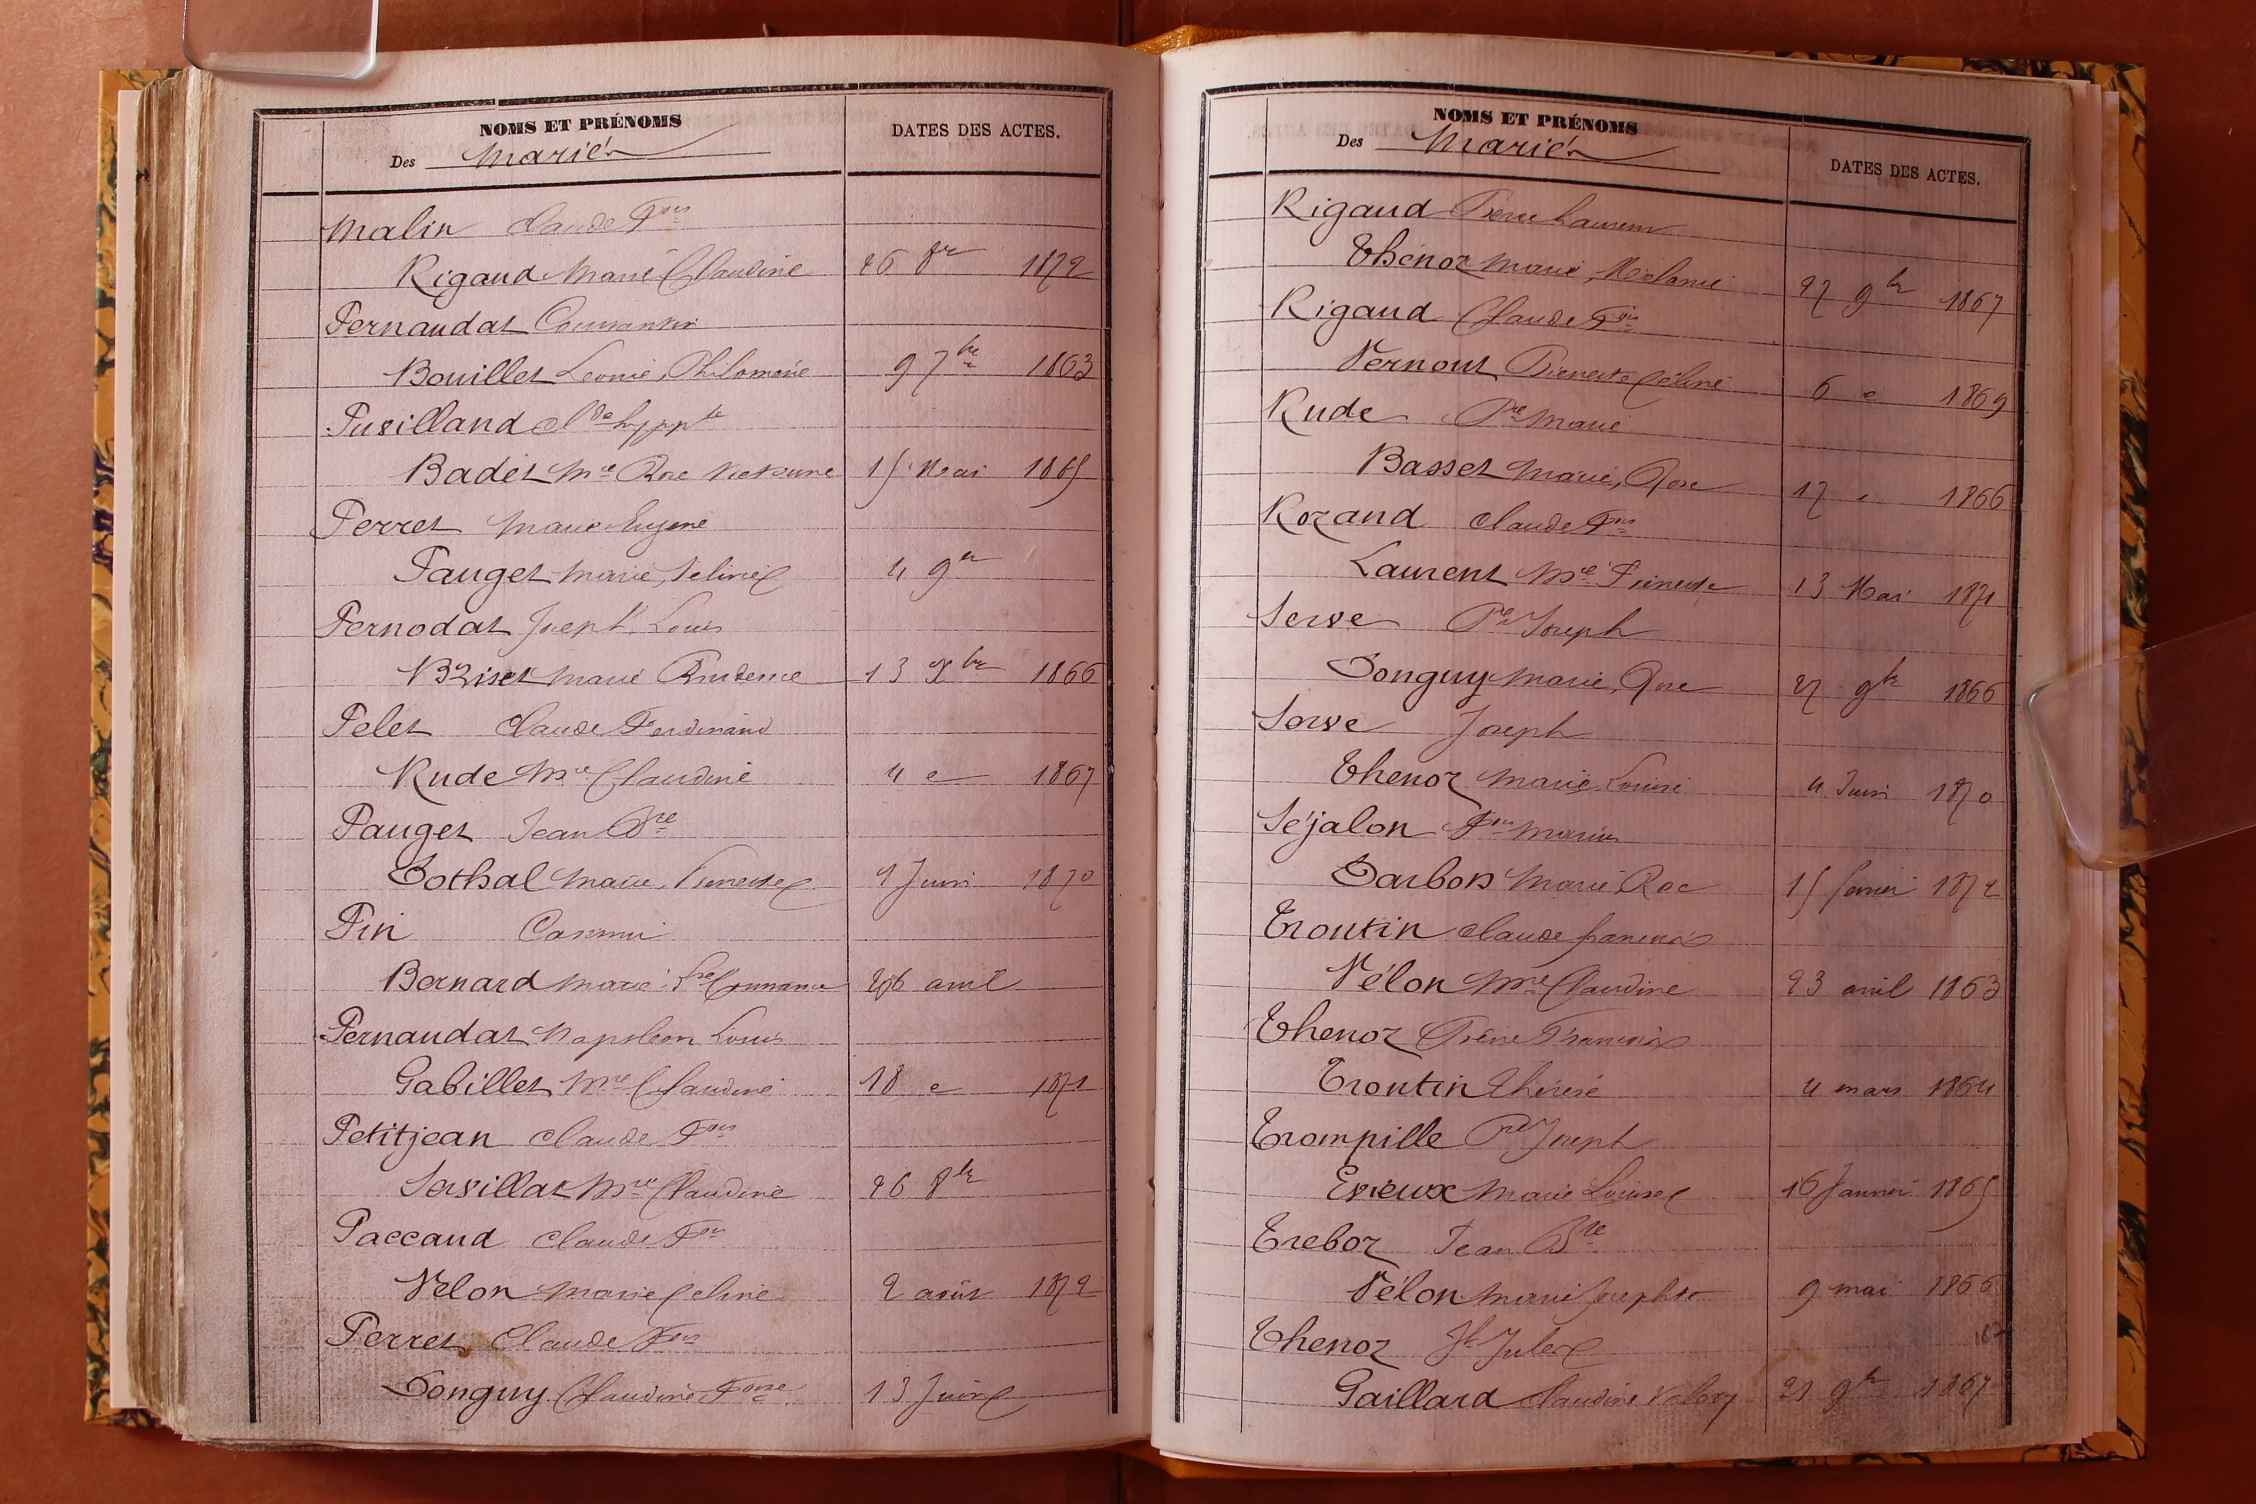 NOMS ET PRÉNOMS
Des Mariés
DATES DES ACTES.
Malin Claude Fçois
Rigaud Marie Claudine 26 8bre 1872
Pernaudat Constantin
Bouillet Léonie Philomène 9 7bre 1863
Pusilland Cde hyppte
Badet Mie Rose Victorine 15 Mai 1865
Perret Marie Eugène
Pauget Marie Celinie 4 9bre
Pernodat Joseph Louis
Briset Marie Prudence 13 Xbre 1866
Pelet Claude Ferdinand
Rude Mie Claudine 4 e 1867
Pauget Jean Bte
Dothal Marie Pierrette 9 Juin 1870
Pin Casimir
Bernard Marie Constance 26 avril
Pernaudat Napoléon Louis
Gabillet Mie Claudine 18 e 1871
Petitjean Claude Fçois
Servillat Mie Claudine 26 8bre
Paccaud Claude Fçois
Velon Marie Celine 2 août 1872
Perret Claude Fçois
Donguy Claudine Fçoise 13 Juin
NOMS ET PRÉNOMS
Des Mariés
DATES DES ACTES.
Rigaud Pierre Laurent
Thénoz Marie Mélanie 27 9bre 1867
Rigaud Claude Fçois
Vernout Pierrette Céline 6 e 1869
Rude Pre Marie
Basset Marie, Rose 17 e 1866
Rozand Claude Fçois
Laurent Mie Pierrette 13 Mai 1871
Serve Pre Joseph
Donguy Marie, Rose 27 9bre 1866
Serve Joseph
Thenoz Marie Louise 4 Juin 1870
Séjalon Fçois Marie
Darbon Marie Rose 15 fevrier 1872
Trontin Claude françois
Vélon Mie Claudine 23 avril 1863
Thenoz Pierre François
Trontin Thérèse 4 mars 1864
Trompille Pre Joseph
Evieux Marie Louise 16 Janvier 1865
Treboz Jean Bte
Vélon Marie Josephte 9 mai 1866
Thenoz Jh Jules
Gaillard Claudine Valery 21 9bre 1867